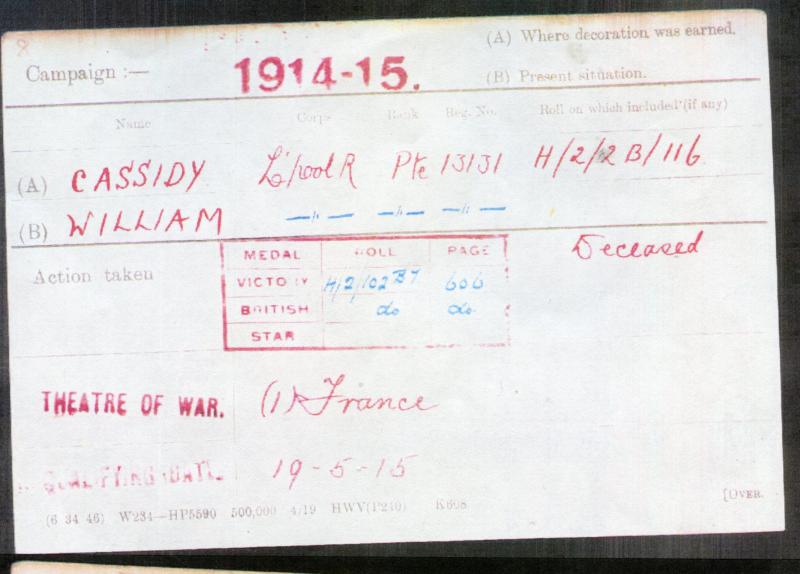 (A) Where decoration was earned.
Campaign :— 1914-15. (B) Present situation.
Name Corps Rank Reg. No. Roll on which included (if any)
(A) CASSIDY L'pool R Pte 13131 H/2/2B/116
(B) WILLIAM —"— —"— —"—
Deceased
Action taken
MEDAL ROLL PAGE
VICTORY H/2/102B7 606
BRITISH do do
STAR
THEATRE OF WAR. (1) France
QUALIFYING DATE. 19-5-15
(6 34 46) W234—HP5590 500,000 4/19 HWV(P240) K608
[OVER.